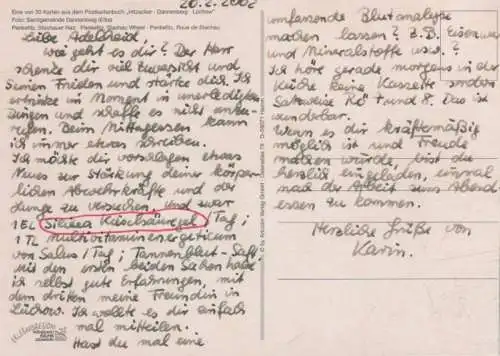 20.2.2002
Eine von 30 Karten aus dem Postkartenbuch „Hitzacker · Dannenberg · Lüchow"
Foto: Samtgemeinde Dannenberg (Elbe)
Penkefitz, Stachauer Rad · Penkefitz, Stachau Wheel · Penkefitz, Roue de Stachau
Liebe Adelheid,
wie geht es dir? Der Herr
schenke dir viel Zuversicht und
Seinen Frieden und stärke dich. Ich
ertrinke im Moment in unerledigten
Dingen und schaffe es nicht anzu-
rufen. Beim Mittagessen kann
ich immer etwas schreiben.
Ich möchte dir vorschlagen, etwas
Neues zur Stärkung deiner körper-
lichen Abwehrkräfte und der
Lunge zu versuchen, und zwar
1 EL Silicea Kieselsäuregel / Tag;
1 TL Multivitaminenergeticum
von Salus / Tag; Tannenblut-Saft
Mit den ersten beiden Sachen habe
ich selbst gute Erfahrungen, mit
dem dritten meine Freundin in
Lüchow. Ich wollte es dir einfach
mal mitteilen.
Hast du mal eine
umfassende Blutanalyse
machen lassen? z.B. Eisenwerte
und Mineralstoffe usw.?
Ich höre gerade morgens in der
Küche eine Kassette
Kö + und 8. Das ist
wunderbar.
Wenn es dir kräftemäßig
möglich ist und Freude
machen würde, bist du
herzlich eingeladen, einmal
nach der Arbeit zum Abend
essen zu kommen.
Herzliche Grüße von
Karin.